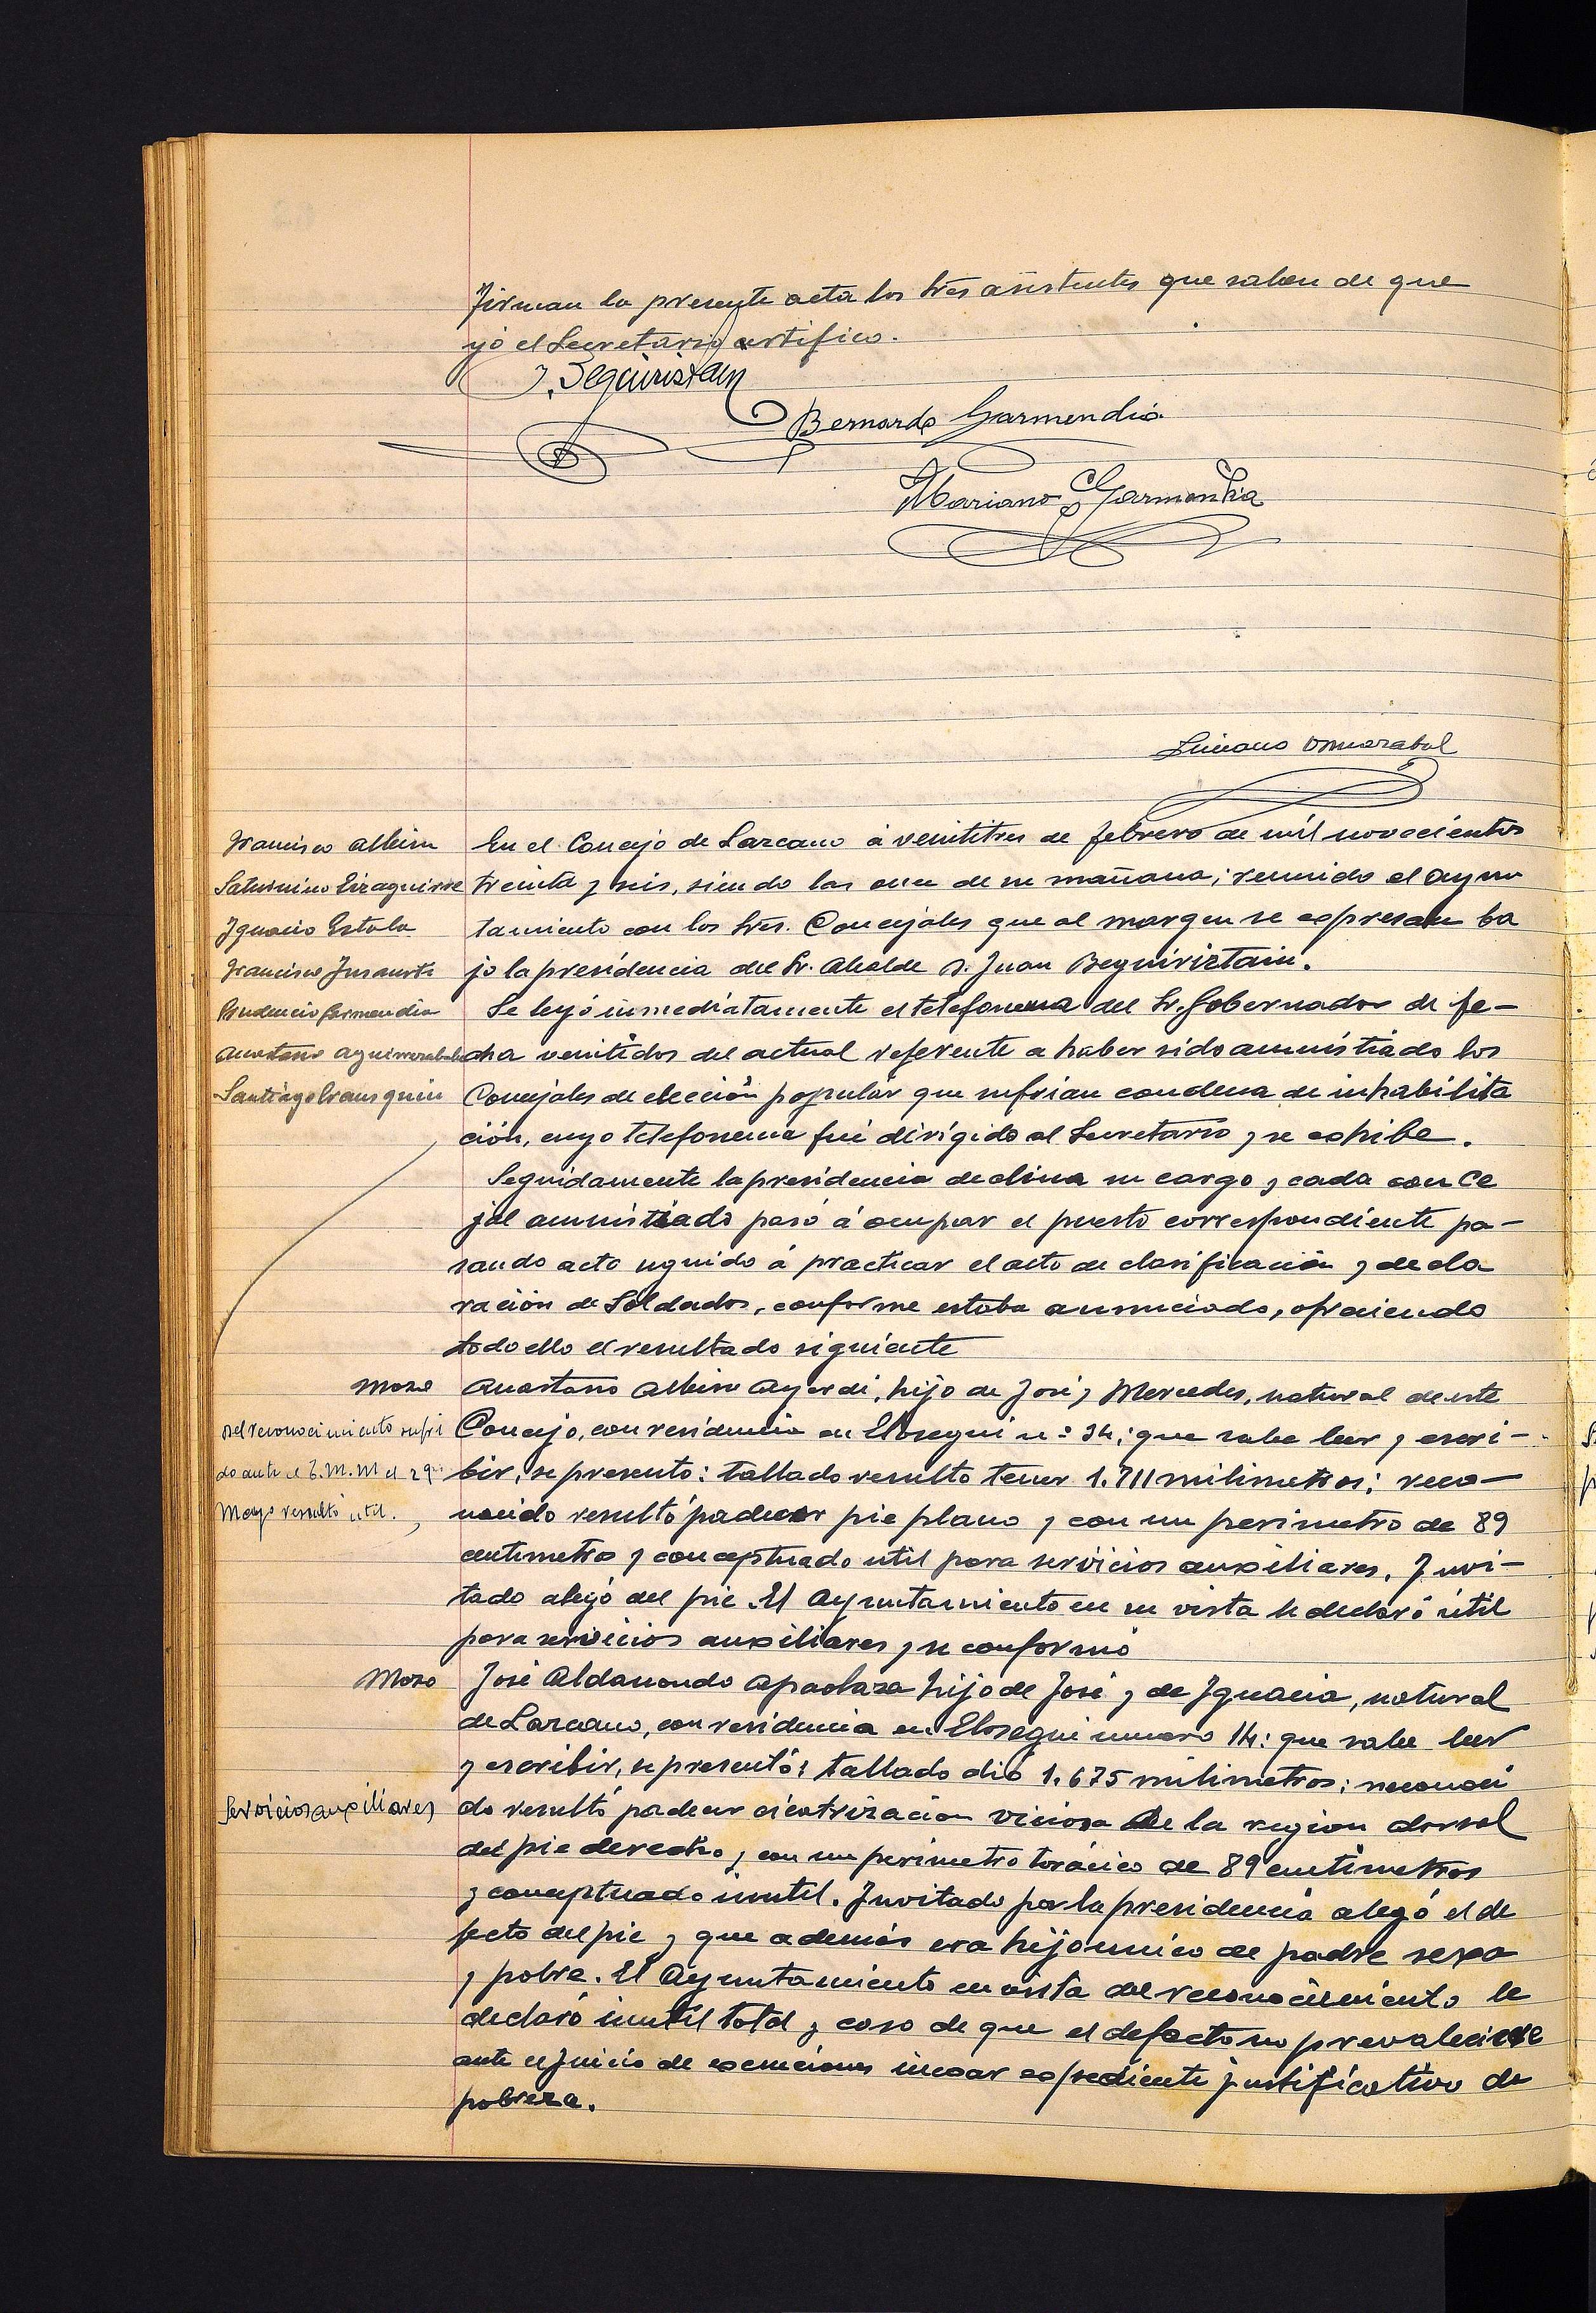 Firman la presente acta los Sres asistentes que saben de que
yo el Secretario certifico.
J. Beguiristain
Bernardo Garmendia
Mariano Garmendia
Luciano
Francisco Albisu
Saturnino Eizaguirre
Ignacio Estala
Francisco Insausti
Prudencio Garmendia
Anastasio Aguirrezabala
Santiago Irausquin
En el Concejo de Lazcano á veintitres de febrero de mil novecientos
treinta y seis, siendo las once de su mañana; reunido el Ayun
tamiento con los Sres. Concejales que al margen se expresan ba
jo la presidencia del Sr. Alcalde D. Juan Beguiristain.
Se leyó inmediatamente el telefonema del Sr. Gobernador de fe-
cha veintidos del actual referente a haber sido amnistiado los
Concejales de elección popular que sufrian condena de inhabilita
ción, cuyo telefonema fué dirigido al Secretario y se exhibe.
Seguidamente la presidencia declina su cargo y cada conce
jal amnistiado pasó á ocupar el puesto correspondiente pa-
sando acto seguido á practicar el acto de clasificación y decla
ración de Soldados, conforme estaba anunciado, ofreciendo
todo ello el resultado siguiente
Mozo
Anastasio Albisu Ayerdi, hijo de José y Mercedes, natural de este
Concejo, con residencia en Elosegui nº 34; que sabe leer y escri-
bir, se presento: tallado resulto tener 1.711 milimetros; reco-
nocido resultó padecer pie plano y con un perimetro de 89
centimetros y conceptuado util para servicios auxiliares. Invi-
tado alegó del pie. El Ayuntamiento en su vista le declaró útil
para servicios auxiliares y se conformó
del reconocimiento sufri
do ante el T.M.M el 29
Mayo resultó util.
Mozo
José Aldanondo Apaolaza hijo de José y de Ignacia, natural
de Lazcano, con residencia en Elosegui numero 14: que sabe leer
y escribir, se presentó: tallado dió 1.675 milimetros; reconoci
do resultó padecer cicatrizacion viciosa de la region dorsal
del pie derecho y con un perimetro torácico de 89 centimetros
y conceptuado inutil. Invitado por la presidencia alegó el de
fecto del pie y que además era hijo unico de padre sexa
y pobre. El Ayuntamiento en vista del reconocimiento le
declaró inutil total y caso de que el defecto no prevaleciese
ante el juicio de exenciones incoar expediente justificativo de
pobreza.
Servicios auxiliares